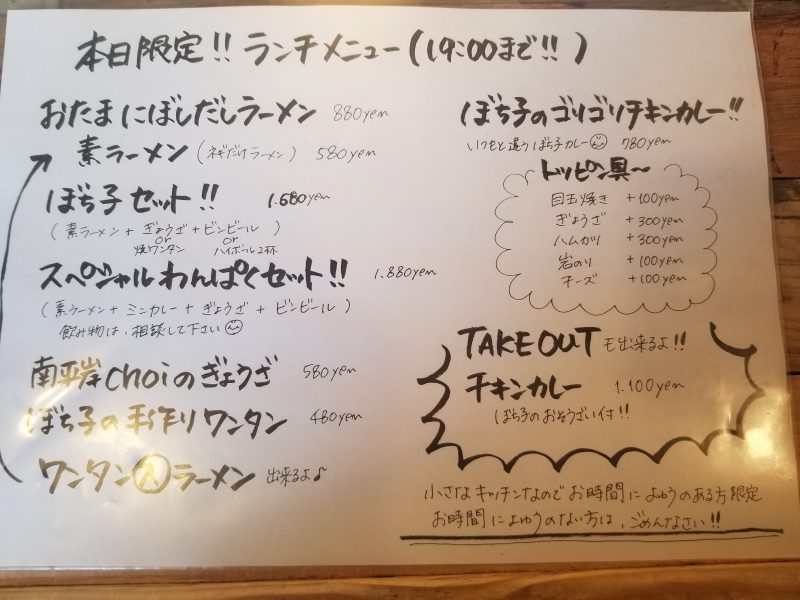 本日限定!! ランチメニュー(19:00まで!!)
おたまにぼしだしラーメン 880yen
素ラーメン (ネギだけラーメン) 580yen
ぼち子セット!! 1.680yen
(素ラーメン + ぎょうざ + ビンビール)
or or
焼ワンタン ハイボール2杯
スペシャルわんぱくセット!! 1.880yen
(素ラーメン + ミニカレー + ぎょうざ + ビンビール)
飲み物は、相談して下さい
南平岸choiのぎょうざ 580yen
ぼち子の手作りワンタン 480yen
ワンタン入ラーメン 出来るよ♪
ぼち子のゴリゴリチキンカレー!!
いつもと違うぼち子カレー 780yen
トッピン具〜
目玉焼き +100yen
ぎょうざ +300yen
ハムカツ +300yen
岩のり +100yen
チーズ +100yen
TAKE OUT も出来るよ!!
チキンカレー 1.100yen
ぼち子のおそうざい付!!
小さなキッチンなのでお時間によゆうのある方限定
お時間によゆうのない方は、ごめんなさい!!